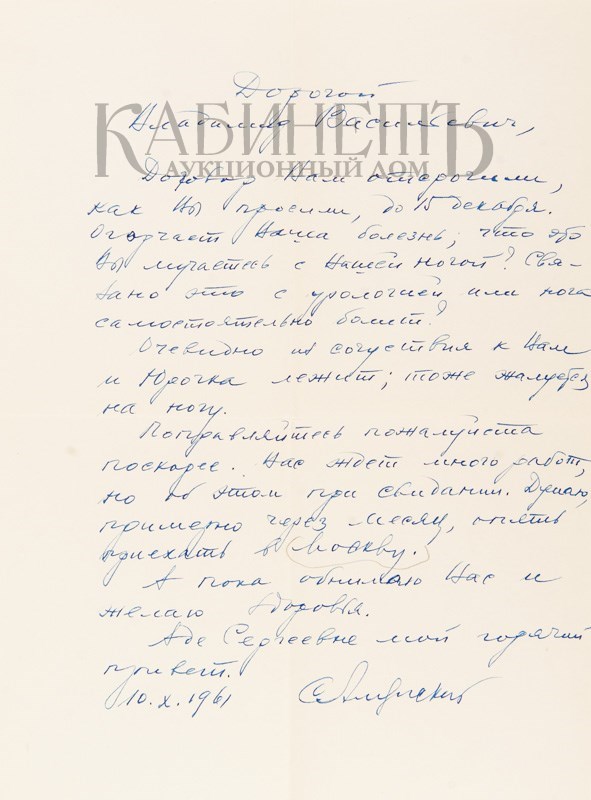 Дорогой
КАБИНЕТЪ
Владимир Васильевич,
АУКЦИОННЫЙ ДОМ
Договор Вам отсрочили,
как Вы просили, до 15 декабря.
Огорчает Ваша болезнь; что это
Вы мучаетесь с Вашей ногой? Свя-
зано это с урологией или нога
самостоятельно болит?
Очевидно из сочуствия к Вам
и Юрочка лежит; тоже жалуется
на ногу.
Поправляйтесь пожалуйста
поскорее. Вас ждет много работ,
но об этом при свидании. Думаю,
примерно через месяц, опять
приехать в Москву.
А пока обнимаю Вас и
желаю здоровья.
Аде Сергеевне мой горячий
привет.
10.X.1961